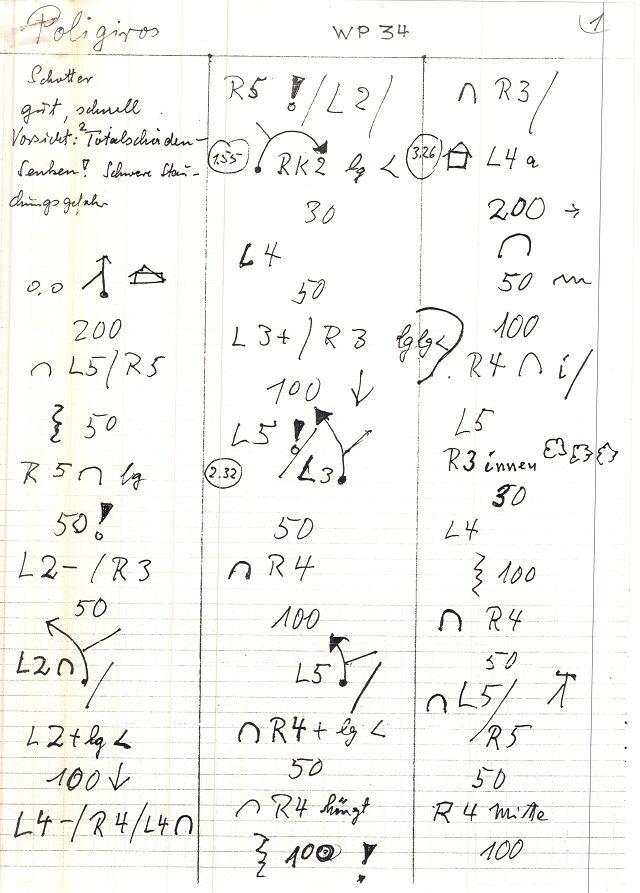 Poligiros
WP 34
1
Schotter
gut, schnell
Vorsicht: Totalschäden-
Senken! Schwere Stau-
chungsgefahr
0.0
200
∩ L5/R5
} 50
R5 ∩ lg
50!
L2-/R3
50
L2∩ /
L2+ lg <
100 ↓
L4-/R4/L4∩
R5 !/L2/
1.55 RK2 lg <
30
L4
50
L3+/R3 lglg<
100 ↓
L5 !
2.32 L3
50
∩ R4
100
L5 /
∩ R4+ lg <
50
∩ R4 hängt
} 100 !
∩ R3/
3.26 L4a
200 →
∩
50
100
R4 ∩ i/
L5
R3 innen
30
L4
} 100
∩ R4
50
∩ L5/
R5
50
R4 Mitte
100